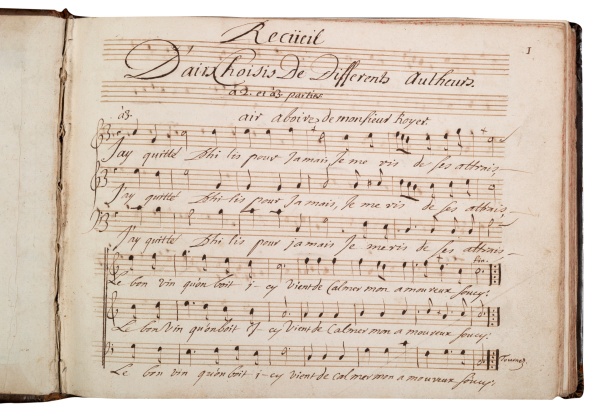 1
Recüeil
D'airs Choisis De Differents Autheurs.
à 2. et à 3. parties.
air a boire, de monsieur Royer.
à 3.
J'ay quitté Phi lis pour Jamais, Je me ris de ses attrais
J'ay quitté Phi lis pour Jamais, Je me ris de ses attrais
J'ay quitté Phi lis pour jamais Je me ris de ses attrais
Fin.
Le bon vin qu'on boit i-cy Vient de Calmer mon amoureux soucy:
Le bon Vin qu'on boit Icy Vient de Calmer mon amoureux soucy;
Tournez
Le bon vin qu'on boit i-cy vient de calmer mon amoureux soucy;